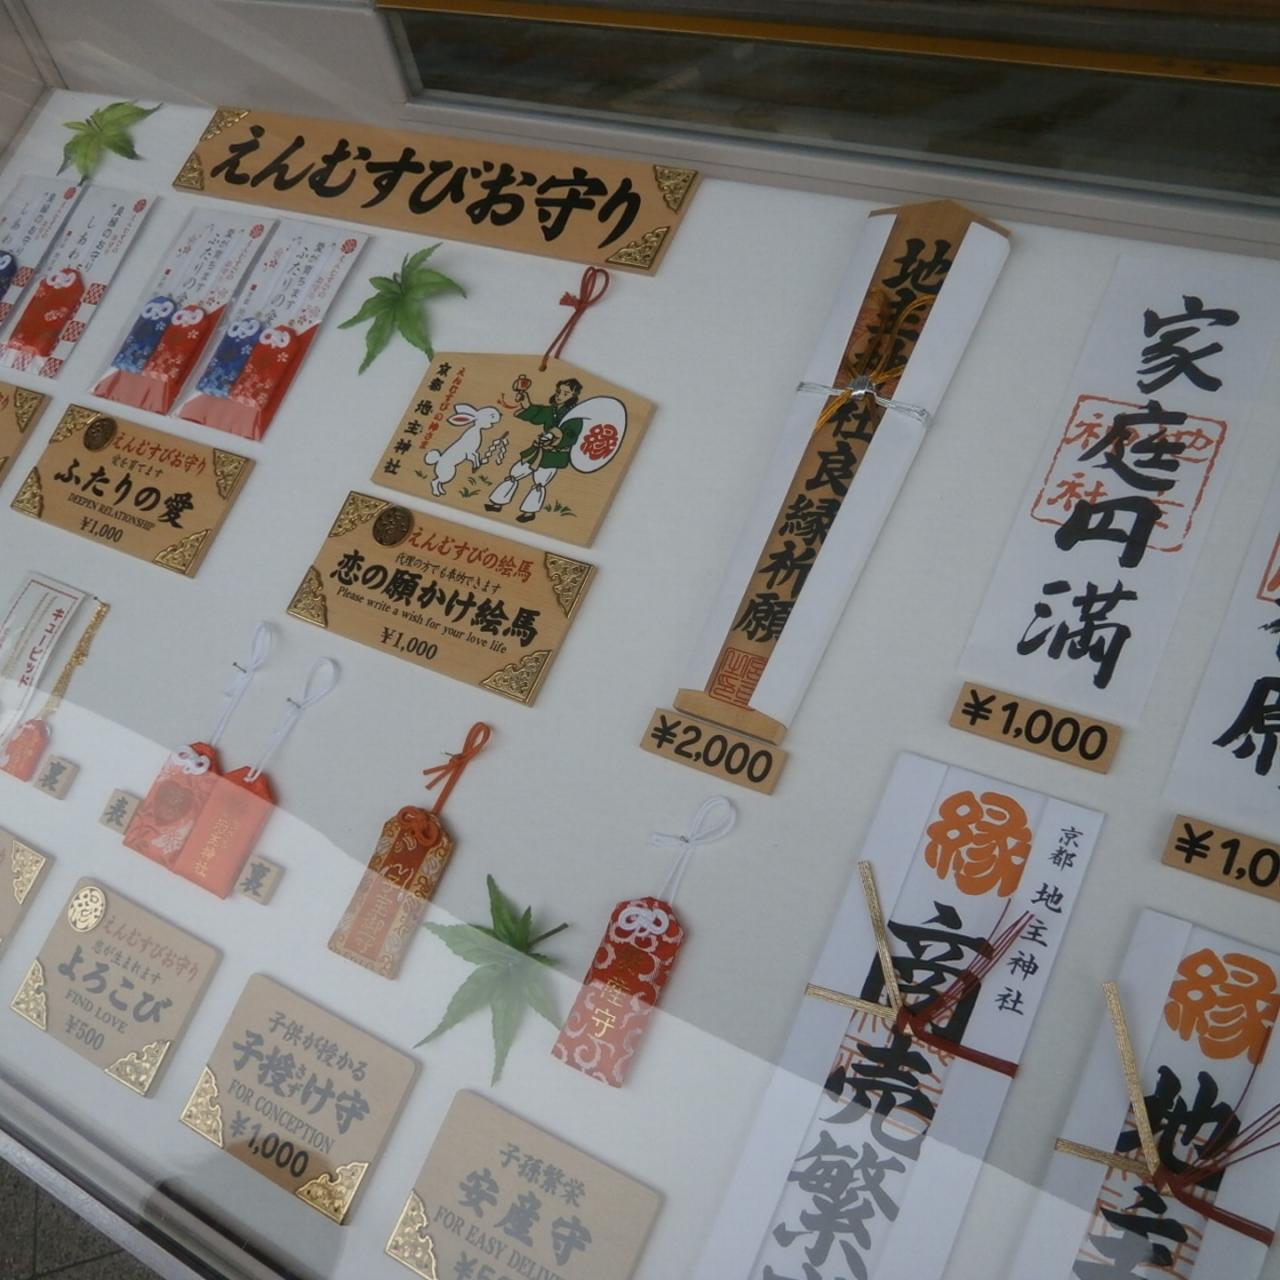 えんむすびお守り
えんむすびお守り
愛を育てます
ふたりの愛
DEEPEN RELATIONSHIP
¥1,000
えんむすびの神さま
京都 地主神社
縁
えんむすびの絵馬
代理の方でも奉納できます
恋の願かけ絵馬
Please write a wish for your love life
¥1,000
地主神社良縁祈願
¥2,000
家庭円満
¥1,000
¥1,0
キューピッド
裏
表
裏
えんむすびお守り
恋が生まれます
よろこび
FIND LOVE
¥500
子供が授かる
子授け守
さず
FOR CONCEPTION
¥1,000
安産守
子孫繁栄
安産守
FOR EASY
縁
京都 地主神社
商売繁
縁
地主